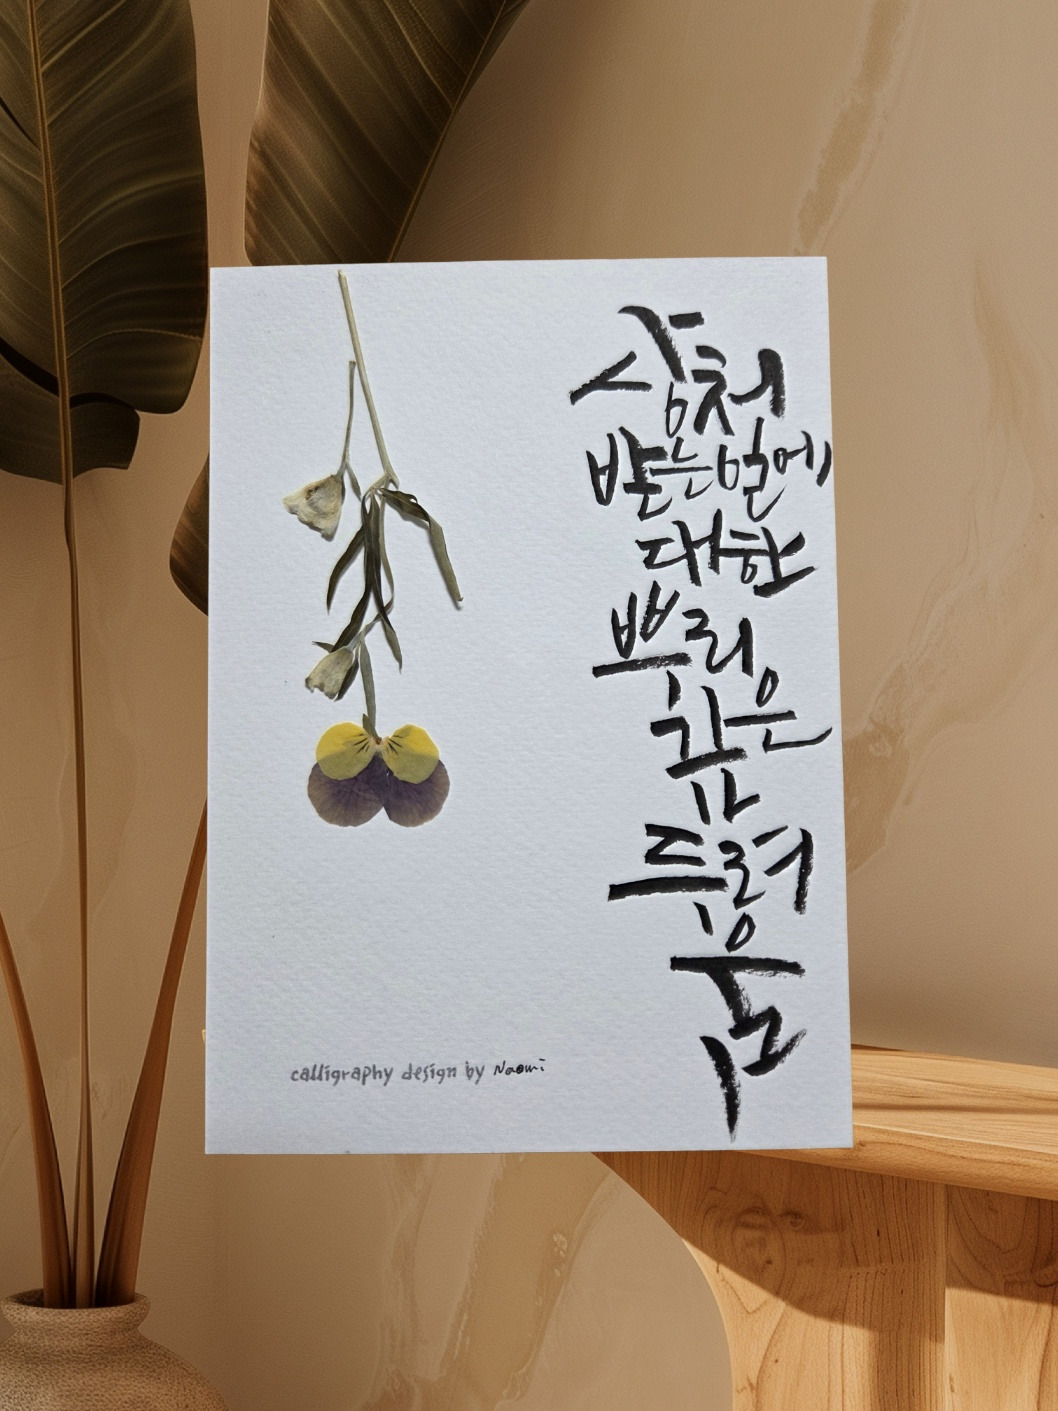 상처
받는 일에
대한
뿌리
깊은
두려
움
calligraphy design by Naomi